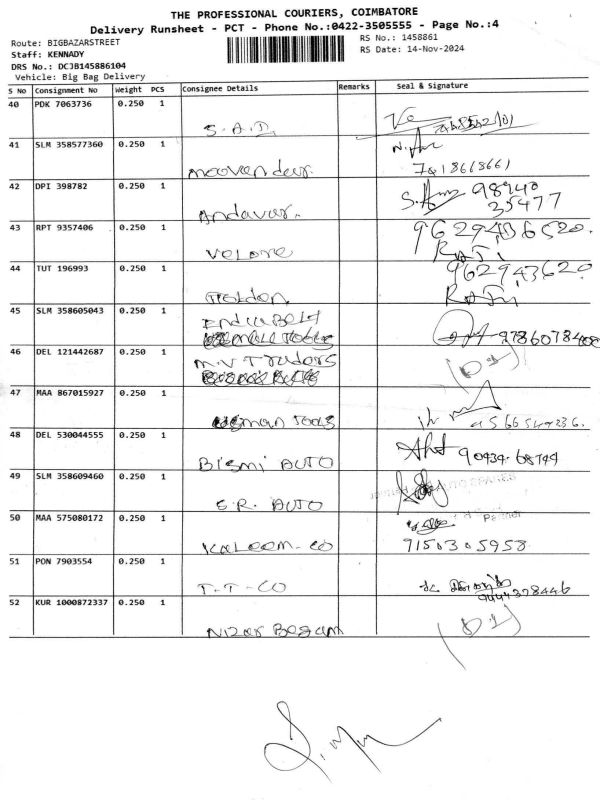 THE PROFESSIONAL COURIERS, COIMBATORE
Delivery Runsheet - PCT - Phone No.:0422-3505555 - Page No.:4
Route: BIGBAZARSTREET
RS No.: 1458861
Staff: KENNADY
RS Date: 14-Nov-2024
DRS No.: DCJB145886104
Vehicle: Big Bag Delivery
S No Consignment No Weight PCS Consignee Details Remarks Seal & Signature
40 PDK 7063736 0.250 1
S.A.I.
41 SLM 358577360 0.250 1
moovendeur. 7418668661
42 DPI 398782 0.250 1 98940
Andavar. 35477
43 RPT 9357406 0.250 1 9629436520.
Velore
44 TUT 196993 0.250 1 962943620
Golden
45 SLM 358605043 0.250 1
India Belt
46 DEL 121442687 0.250 1
M.V Traders
47 MAA 867015927 0.250 1
Usman Tools
48 DEL 530044555 0.250 1
Bismi AUTO 90434-68744
49 SLM 358609460 0.250 1
S.R. AUTO
50 MAA 575080172 0.250 1
Partner
Kaleem-co 9150305958
51 PON 7903554 0.250 1
T-T-CO 9444328446
52 KUR 1000872337 0.250 1
Nizar Begam